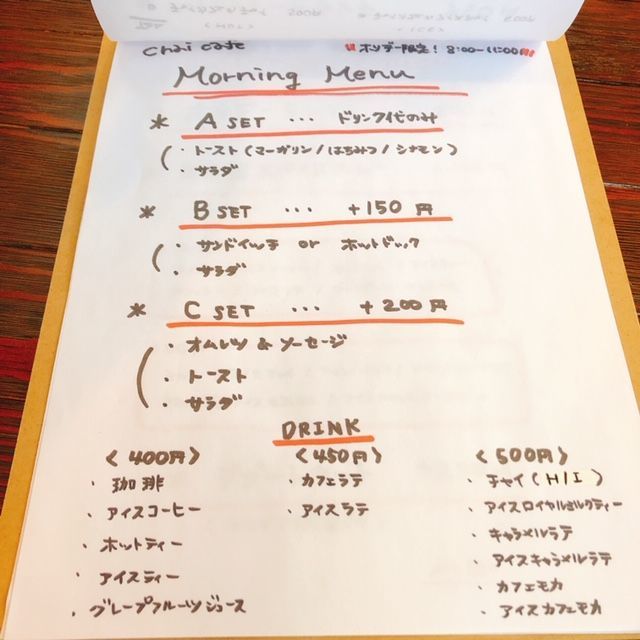 Chai cafe
ホリデー限定! 8:00-11:00
Morning Menu
* A SET ... ドリンク代のみ
・トースト(マーガリン/はちみつ/シナモン)
・サラダ
* B SET ... +150円
・サンドイッチ or ホットドック
・サラダ
* C SET ... +200円
・オムレツ & ソーセージ
・トースト
・サラダ
DRINK
<400円>
・珈琲
・アイスコーヒー
・ホットティー
・アイスティー
・グレープフルーツジュース
<450円>
・カフェラテ
・アイスラテ
<500円>
・チャイ(H/I)
・アイスロイヤルミルクティー
・キャラメルラテ
・アイスキャラメルラテ
・カフェモカ
・アイスカフェモカ